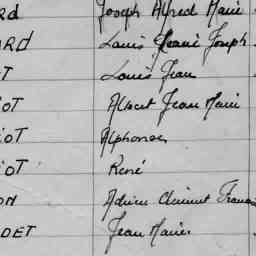 RD Joseph Alfred Marie
RD Louis Joseph
T Louis Jean
OT Albert Jean Marie
OT Alphonse
OT René
ON Adrien Clément
DET Jean Marie